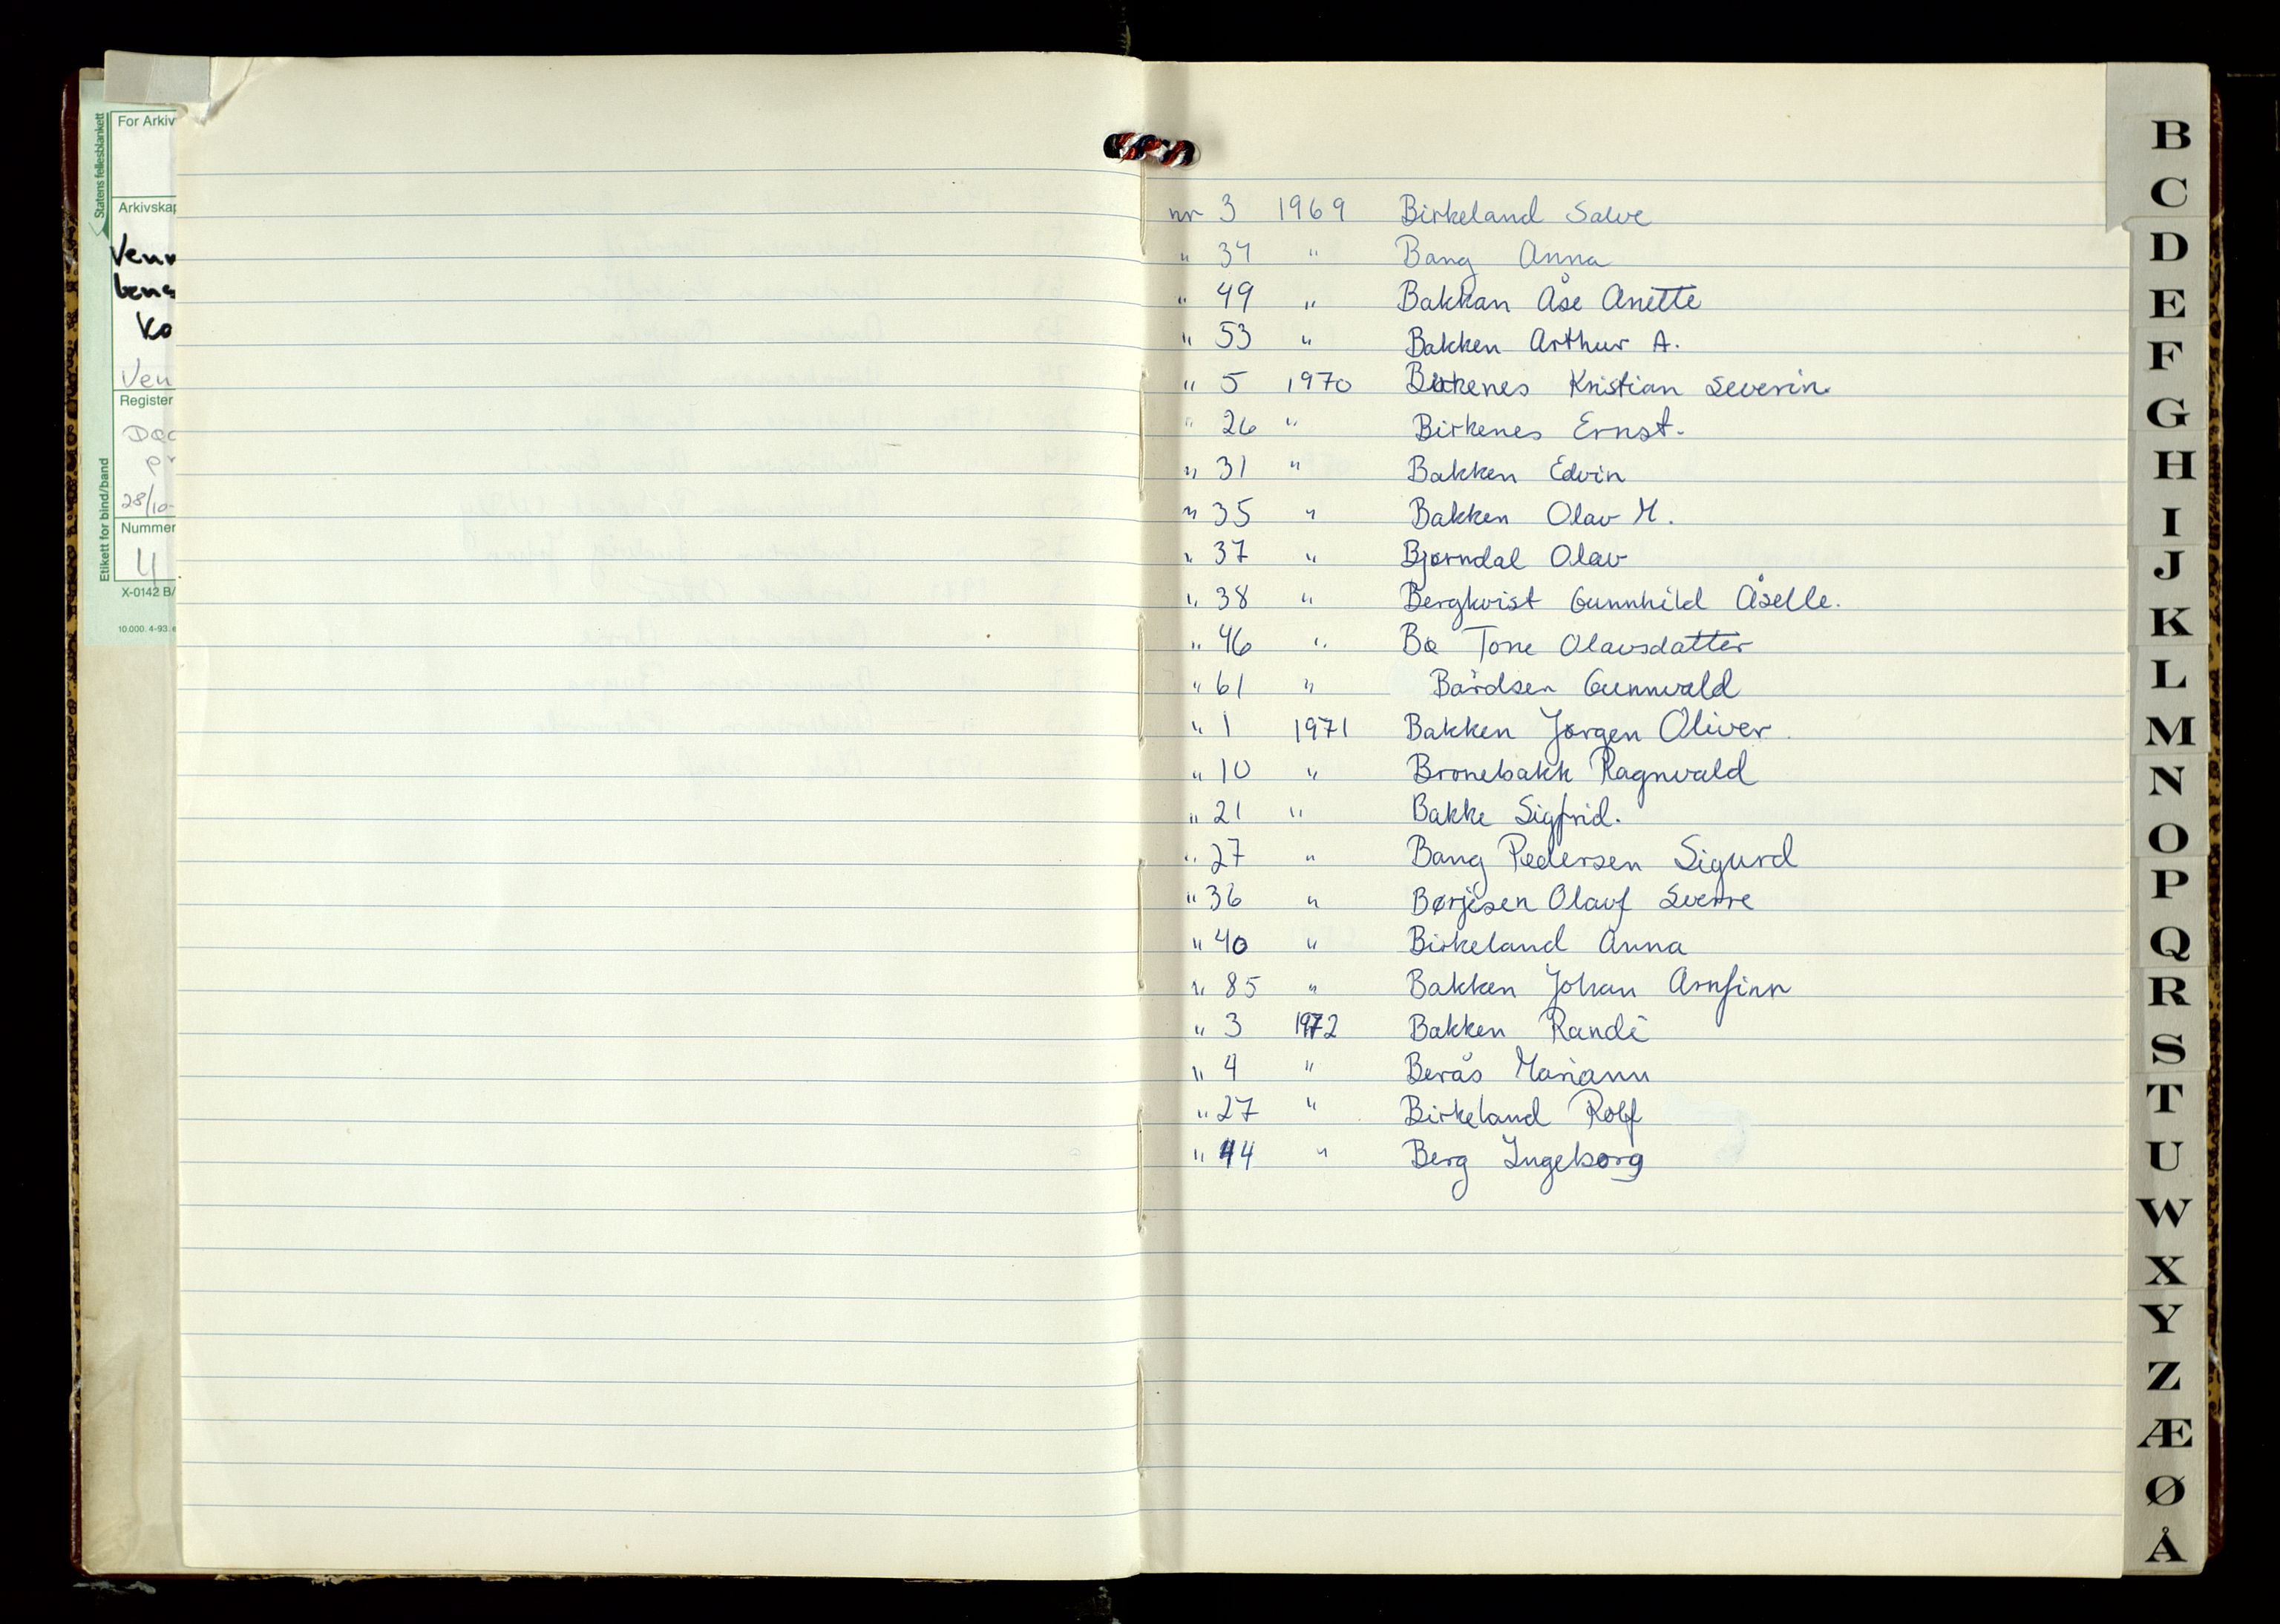 Statens fellesblankett
Etikett for bind/band
For Arkiv
Arkivskap
Venn
benn
Ko
Ven
Register
28/10-
Nummer
4
X-0142 B/
10.000. 4-93.
nr 3 1969 Birkeland Salve
" 34 " Bang Anna
" 49 " Bakkan Åse Anette
" 53 " Bakken Arthur A.
" 5 1970 Birkenes Kristian Severin.
" 26 " Birkenes Ernst.
" 31 " Bakken Edvin
" 35 " Bakken Olav M.
" 37 " Bjørndal Olav
" 38 " Bergkvist Gunnhild Åselle.
" 46 " Bø Tone Olavsdatter
" 61 " Bårdsen Gunnvald
" 1 1971 Bakken Jørgen Oliver.
" 10 " Bronebakk Ragnvald
" 21 " Bakke Sigfrid.
" 27 " Bang Pedersen Sigurd
" 36 " Børjesen Olauf Sverre
" 40 " Birkeland Anna
" 85 " Bakken Johan Arnfinn
" 3 1972 Bakken Randi
" 4 " Berås Mariann
" 27 " Birkeland Rolf
" 44 " Berg Ingeborg
B
C
D
E
F
G
H
I
J
K
L
M
N
O
P
Q
R
S
T
U
W
X
Y
Z
Æ
Ø
Å